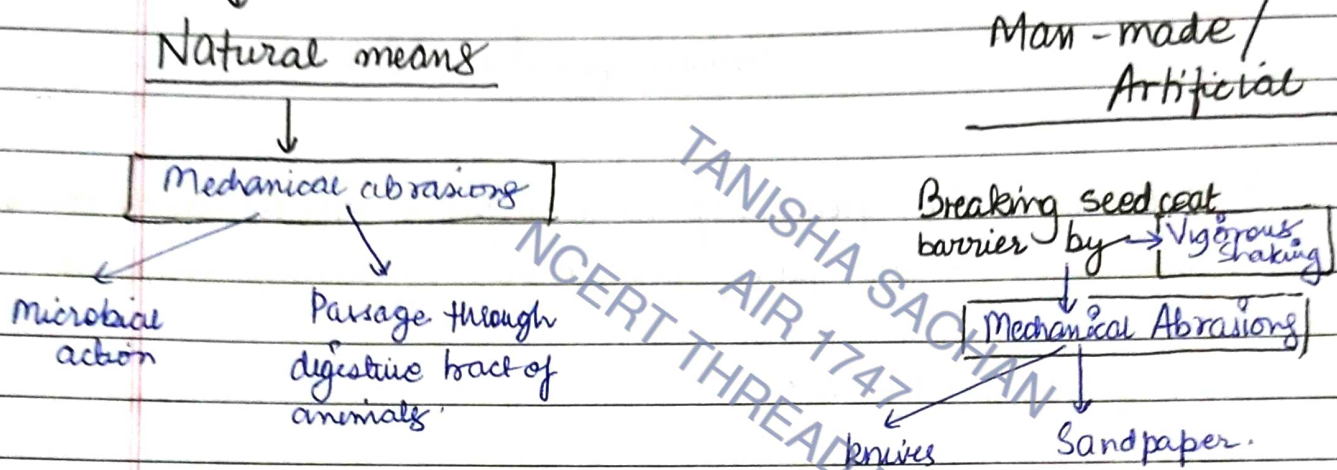 Natural means
Mechanical abrasions
Microbial
action
Passage through
digestive tract of
animals
Man-made/
Artificial
Breaking seed coat
barrier by → Vigorous
shaking
Mechanical Abrasions
knives
Sandpaper.
TANISHA SACHAN
AIR 1747
NCERT THREAD